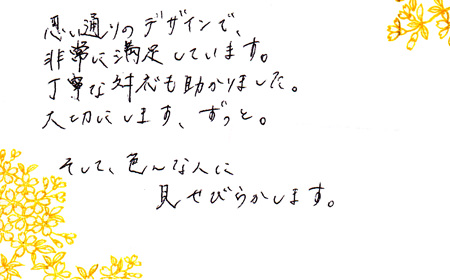 思い通りのデザインで、
非常に満足しています。
丁寧な対応も助かりました。
大切にします、ずっと。
そして、色んな人に
見せびらかします。